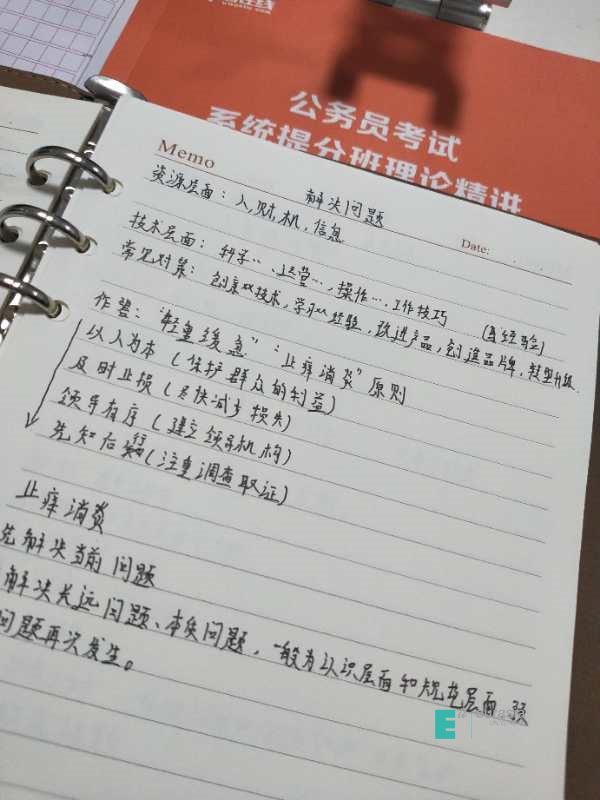 公务员考试
系统提分班理论精讲
Memo
解决问题
Date:
资源层面：人,财,机,信息
技术层面：科学…、运营…,操作…,工作技巧 (与经验)
常见对策：创新双技术,学习双经验,改进产品,创造品牌,转型升级.
作题："轻重缓急"："止痒消炎"原则
以人为本（保护群众的利益）
及时止损（尽快减少损失）
领导有序（建立领导机构）
先知后行（注重调查取证）
止痒消炎
先解决当前问题
解决长远问题、本质问题，一般为认识层面和规范层面
问题再次发生。
E